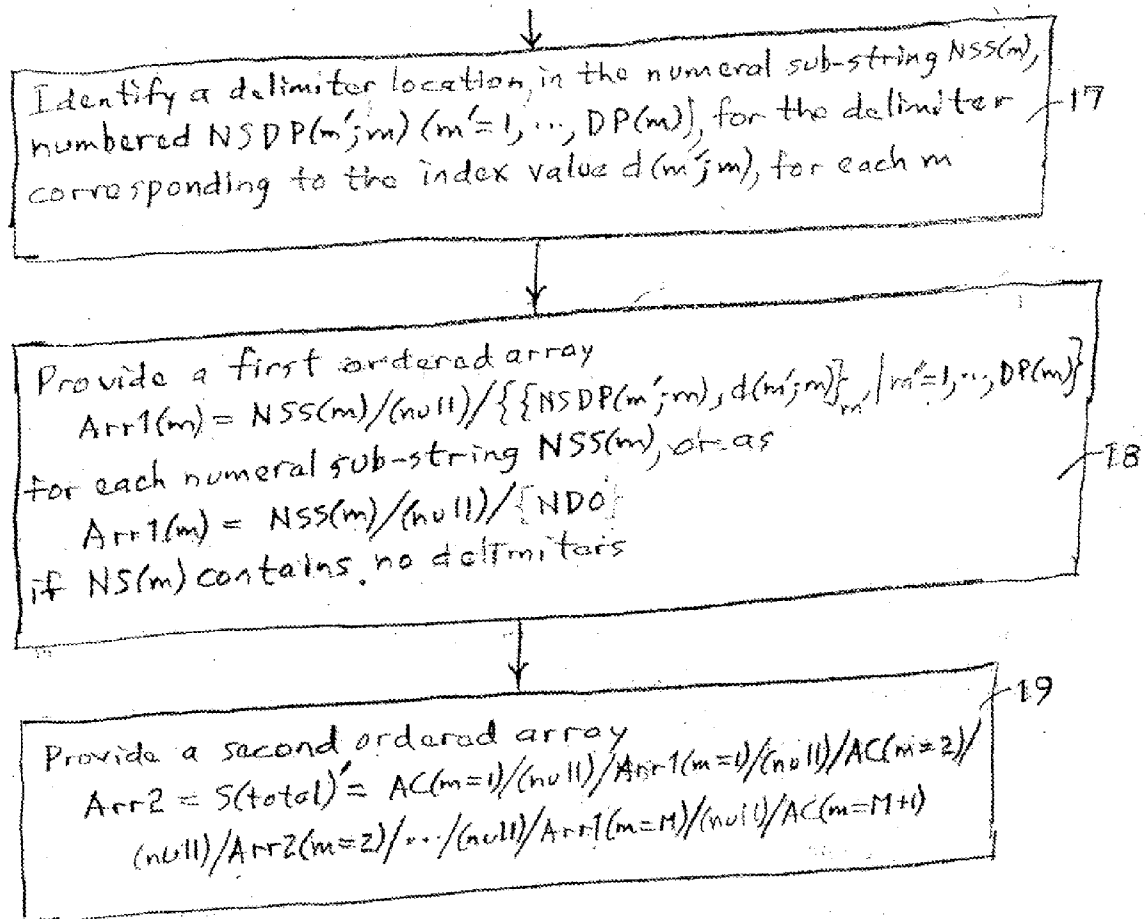 Identify a delimiter location, in the numeral sub-string NSS(m),
numbered NSDP(m';m) (m'=1, ..., DP(m)), for the delimiter
corresponding to the index value d(m';m), for each m
17
Provide a first ordered array
Arr1(m) = NSS(m)/(null)/{{NSDP(m';m), d(m';m)}m' | m'=1, ..., DP(m)}
for each numeral sub-string NSS(m), or as
Arr1(m) = NSS(m)/(null)/{NDO}
if NS(m) contains no delimiters
18
Provide a second ordered array
Arr2 = S(total)' = AC(m=1)/(null)/Arr1(m=1)/(null)/AC(m=2)/
(null)/Arr2(m=2)/.../(null)/Arr1(m=M)/(null)/AC(m=M+1)
19